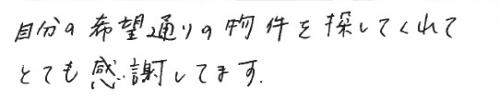 自分の希望通りの物件を探してくれて
とても感謝してます.